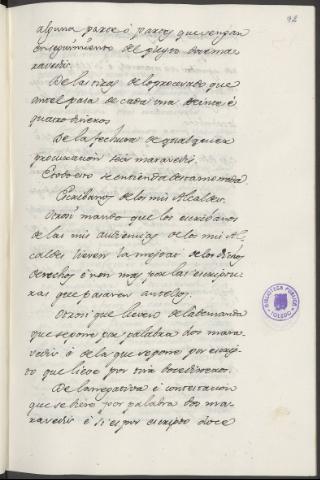 92
alguna parte ó partes que vengan
en seguimiento del pleyto dos ma
ravedis.
De las tiras de lo procesado que
ante el pasa de cada una veinte é
quatro dineros
De la fechura de qualquiera
procuracion seis maravedis.
E todo esto se entienda desta moneda
Escribanos de los mis Alcaldes.
Otrosi mando que los escribanos
de las mis audiencias de los mis Al
caldes lieven la meytat de los dichos
derechos é non mas por las escriptu
ras que pasaren ante ellos.
Otrosi que lieven de la demanda
que se pone por palabra dos mara
vedis é de la que se pone por escrip
to que lieve por tira doce dineros.
De la negativa é contestacion
que se hiciere por palabra dos ma
ravedis é si es por escripto doce
BIBLIOTECA PUBLICA
TOLEDO